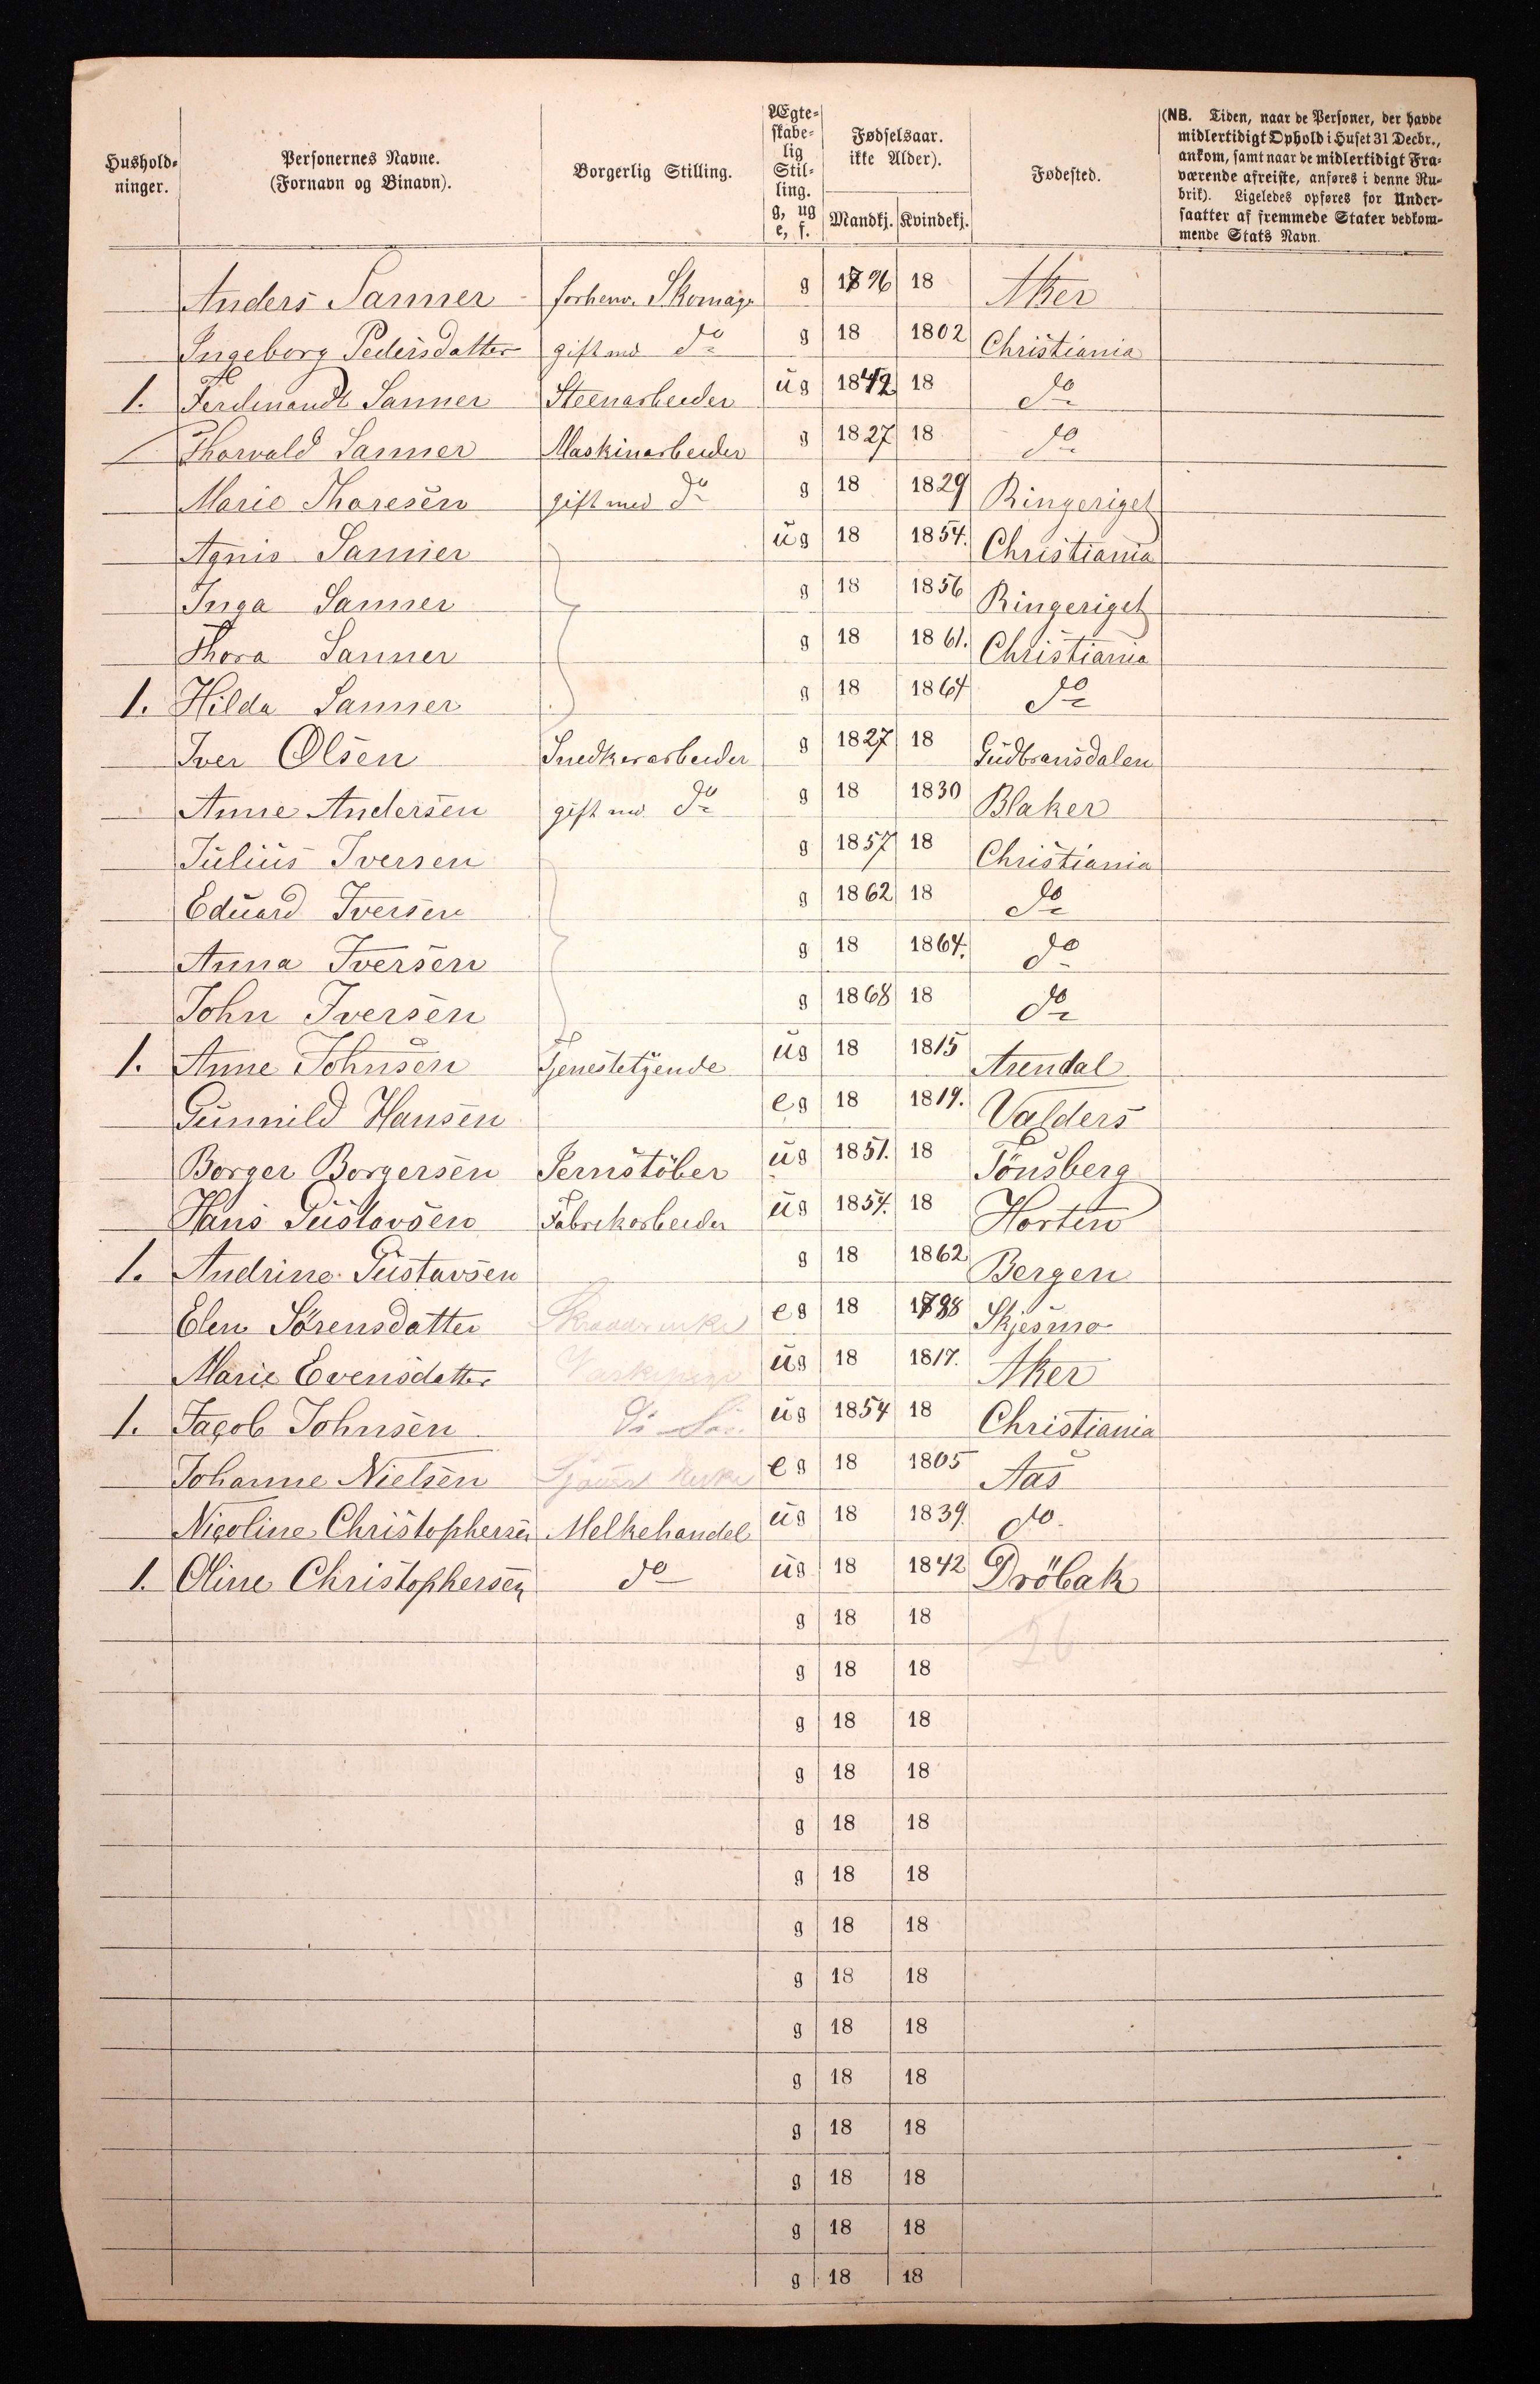 Hushold-
ninger.
Personernes Navne.
(Fornavn og Binavn).
Borgerlig Stilling.
Ægte-
skabe-
lig
Stil-
ling.
g, ug
e, f.
Fødselsaar.
ikke Alder).
Mandkj. Kvindekj.
Fødested.
(NB. Tiden, naar de Personer, der havde
midlertidigt Ophold i Huset 31 Decbr.,
ankom, samt naar de midlertidigt Fra-
værende afreiste, anføres i denne Ru-
brik). Ligeledes opføres for Under-
saatter af fremmede Stater vedkom-
mende Stats Navn.
Anders Sanner forhenv. Skomage g 1796 18 Aker
Ingeborg Pedersdatter gift md do g 18 1802 Christiania
1. Ferdinandt Sanner Steenarbeider ug 1842 18 do
Thorvald Sanner Maskinarbeider g 1827 18 do
Marie Thoresen gift med do g 18 1829 Ringeriget
Agnis Sanner ug 18 1854. Christiania
Inga Sanner g 18 1856 Ringeriget
Thora Sanner g 18 1861. Christiania
1. Hilda Sanner g 18 1864 do
Iver Olsen Snedkerarbeider g 1827 18 Gudbransdalen
Anne Andersen gift md. do g 18 1830 Blaker
Julius Iversen g 1857 18 Christiania
Eduard Iversen g 1862 18 do
Anna Iversen g 18 1864. do
John Iversen g 1868 18 do
1. Anne Johnsen Tjenestetjende ug 18 1815 Arendal
Gunnild Hansen eg 18 1819. Valders
Borger Borgersen Jernstöber ug 1851. 18 Tönsberg
Hans Gustavsen Fabrikarbeider ug 1854. 18 Horten
1. Andrine Gustavsen g 18 1862 Bergen
Elen Sørensdatter eg 18 1798 Skjesmo
Marie Evensdatter ug 18 1817. Aker
1. Jacob Johnsen do Sön ug 1854 18 Christiania
Johanne Nielsen Enke eg 18 1805 Aas
Nicoline Christophersen Melkehandel ug 18 1839. do.
1. Oline Christophersen do ug 18 1842 Dröbak
g 18 18 26
g 18 18
g 18 18
g 18 18
g 18 18
g 18 18
g 18 18
g 18 18
g 18 18
g 18 18
g 18 18
g 18 18
g 18 18
g 18 18